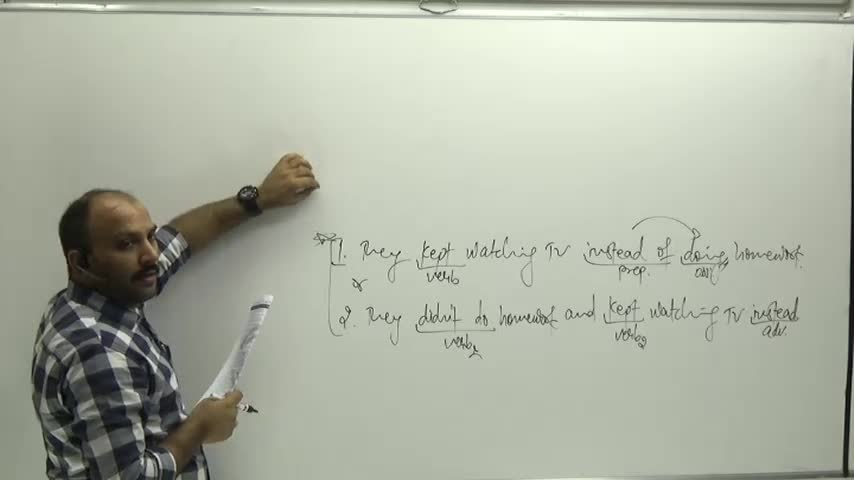 1. They kept watching TV instead of doing homework.
verb prep. obj
or
2. They didn't do homework and kept watching TV instead
verb1 verb2 adv.